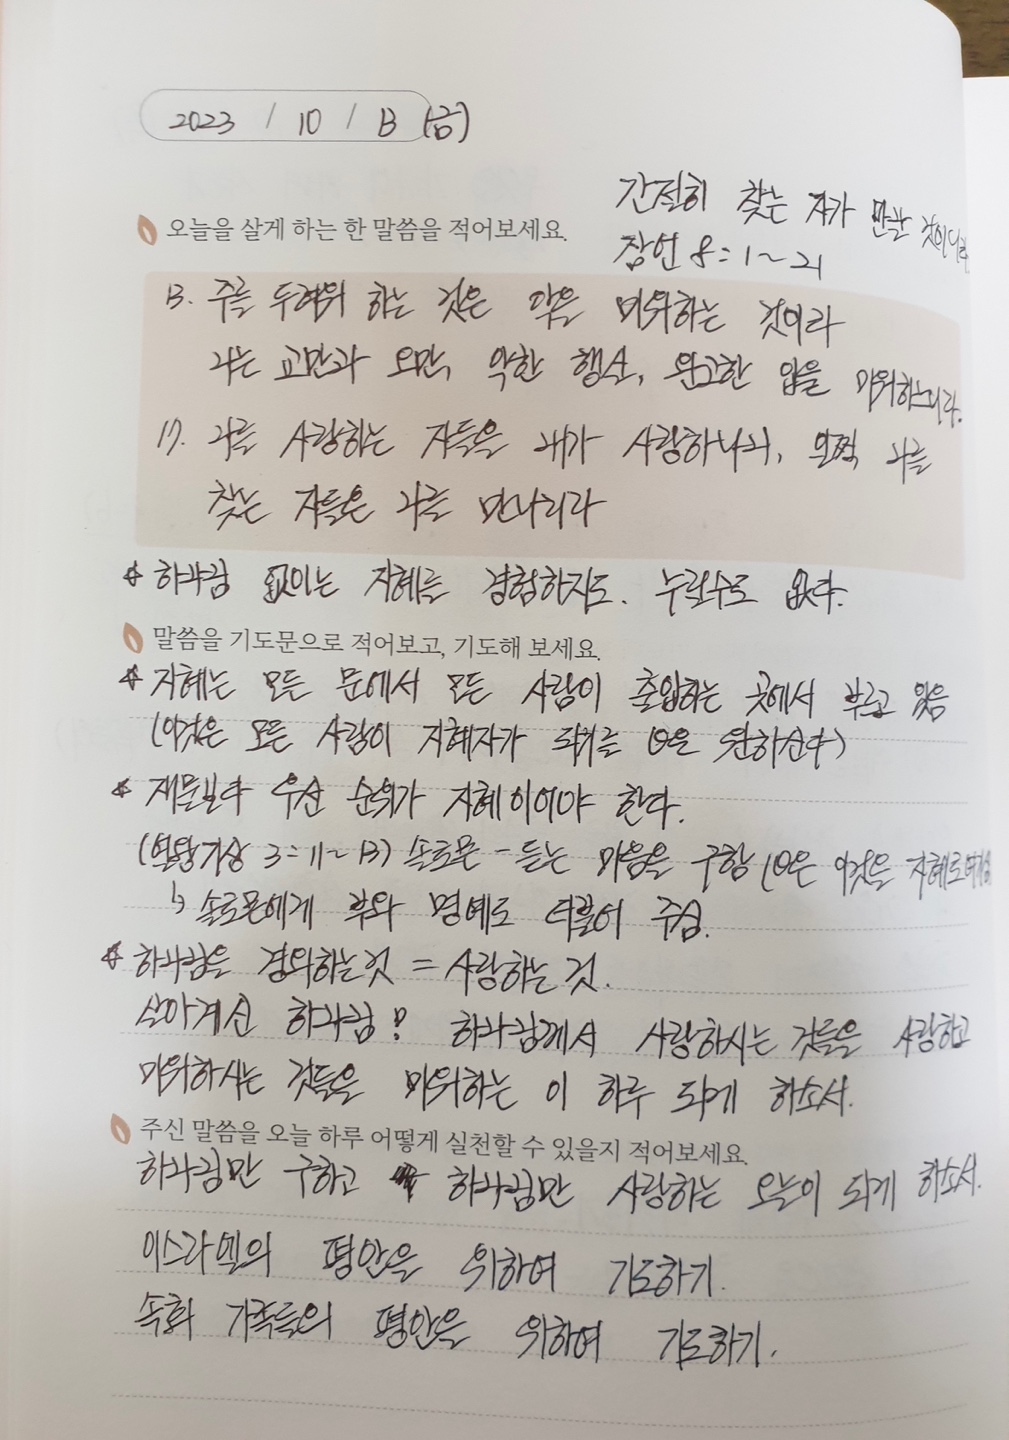 2023 / 10 / 13 (금)
간절히 찾는 자가 만날 것이니라
잠언 8:1~21
오늘을 살게 하는 한 말씀을 적어보세요.
13. 주를 두려워 하는 것은 악을 미워하는 것이라
나는 교만과 오만, 악한 행실, 완고한 입을 미워하느니라.
17. 나를 사랑하는 자들을 내가 사랑하나니, 일찍 나를
찾는 자들은 나를 만나리라
☆ 하나님 없이는 지혜를 경험하지도. 누릴수도 없다.
말씀을 기도문으로 적어보고, 기도해 보세요.
☆ 지혜는 모든 문에서 모든 사람이 출입하는 곳에서 부르고 있음
(이것은 모든 사람이 지혜자가 되기를 원하신다)
☆ 재물보다 우선 순위가 지혜이어야 한다.
(열왕기상 3:11~13) 솔로몬 - 듣는 마음을 구함 ( 이것을 지혜로
↳ 솔로몬에게 부와 명예로 더불어 주심.
☆ 하나님을 경외하는것 = 사랑하는 것.
살아계신 하나님! 하나님께서 사랑하시는 것들을 사랑하고
미워하시는 것들을 미워하는 이 하루 되게 하소서.
주신 말씀을 오늘 하루 어떻게 실천할 수 있을지 적어보세요.
하나님만 구하고 하나님만 사랑하는 오늘이 되게 하소서.
이스라엘의 평안을 위하여 기도하기.
속회 가족들의 평안을 위하여 기도하기.